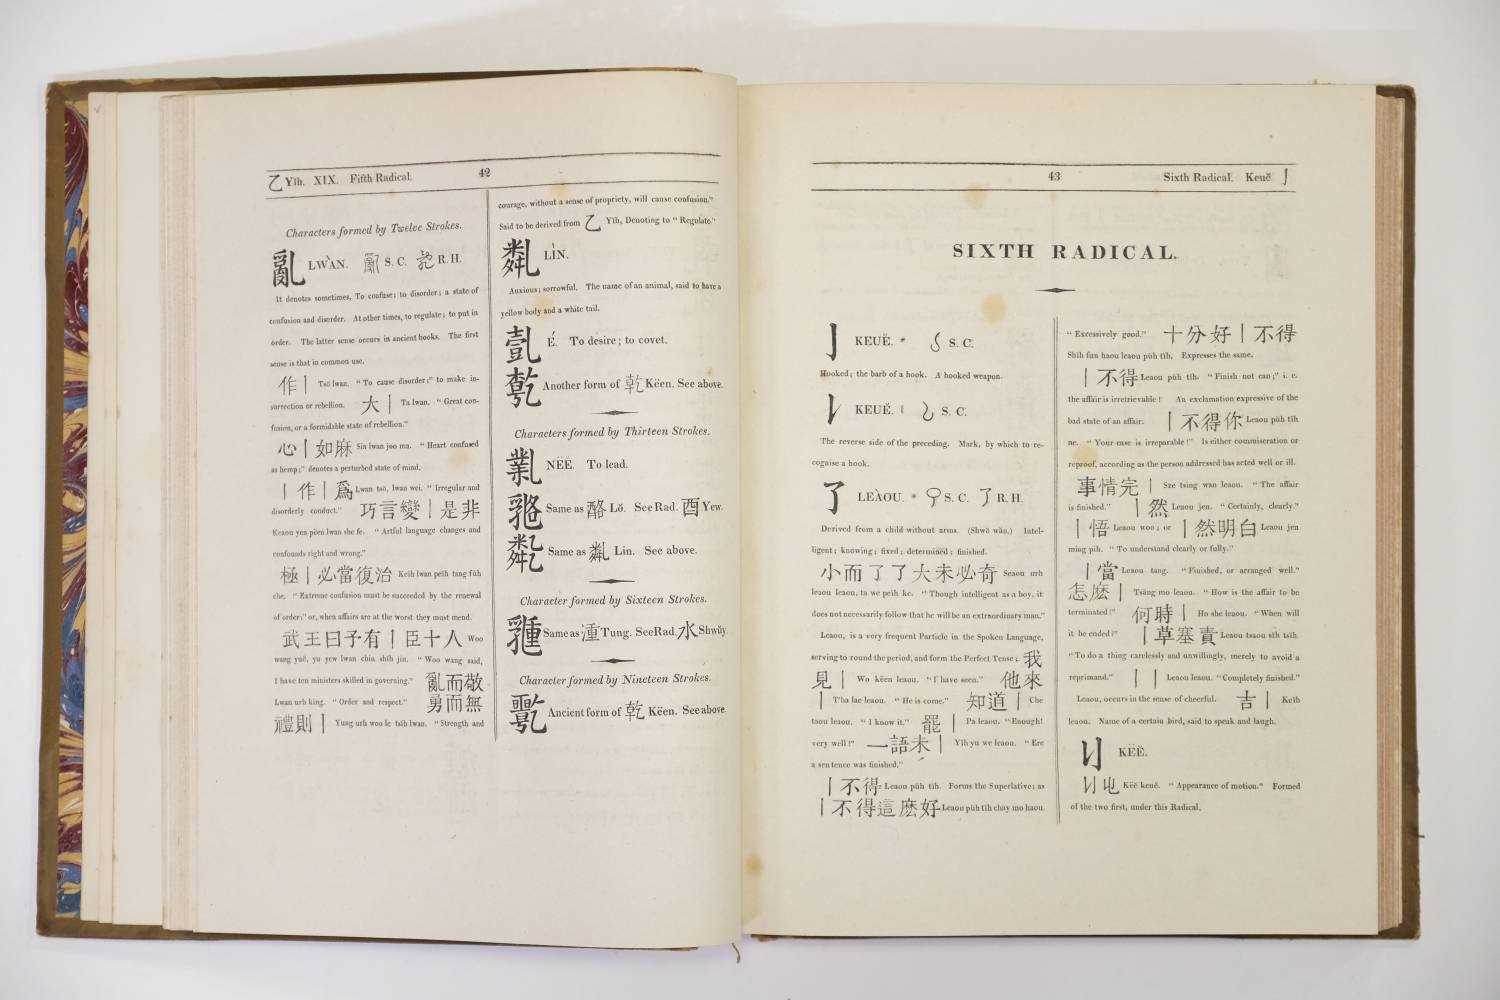 乙 Yĭh. XIX. Fifth Radical. 42
Characters formed by Twelve Strokes.
亂 LWÀN. S. C. R. H.
It denotes sometimes, To confuse; to disorder; a state of
confusion and disorder. At other times, to regulate; to put in
order. The latter sense occurs in ancient books. The first
sense is that in common use.
作丨 Tsŏ lwan. “To cause disorder;” to make in-
surrection or rebellion. 大丨 Ta lwan. “Great con-
fusion, or a formidable state of rebellion.”
心丨如麻 Sin lwan joo ma. “Heart confused
as hemp;” denotes a perturbed state of mind.
丨作丨爲 Lwan tsŏ, lwan wei. “Irregular and
disorderly conduct.” 巧言變丨是非
Keaou yen pëen lwan she fe. “Artful language changes and
confounds right and wrong.”
極丨必當復治 Keĭh lwan peĭh tang fŭh
che. “Extreme confusion must be succeeded by the renewal
of order;” or, when affairs are at the worst they must mend.
武王曰予有丨臣十人 Woo
wang yuĕ, yu yew lwan chin shĭh jin. “Woo wang said,
I have ten ministers skilled in governing.” 亂而敬
Lwan urh king. “Order and respect.” 勇而無
禮則丨 Yung urh woo le tsĭh lwan. “Strength and
courage, without a sense of propriety, will cause confusion.”
Said to be derived from 乙 Yĭh, Denoting to “Regulate.”
LÌN.
Anxious; sorrowful. The name of an animal, said to have a
yellow body and a white tail.
É. To desire; to covet.
Another form of 乾 Këen. See above.
Characters formed by Thirteen Strokes.
NËĔ. To lead.
Same as 酪 Lŏ. See Rad. 酉 Yew.
Same as Lin. See above.
Character formed by Sixteen Strokes.
Same as 湩 Tung. See Rad. 水 Shwŭy
Character formed by Nineteen Strokes.
Ancient form of 乾 Këen. See above
43 Sixth Radical. Keuĕ 亅
SIXTH RADICAL.
亅 KEUĔ. * S. C.
Hooked; the barb of a hook. A hooked weapon.
KEUĔ. S. C.
The reverse side of the preceding. Mark, by which to re-
cognise a hook.
了 LEÀOU. * S. C. 了 R. H.
Derived from a child without arms. (Shwŏ wăn.) Intel-
ligent; knowing; fixed; determined; finished.
小而了了大未必奇 Seaou urh
leaou leaou, ta we peih ke. “Though intelligent as a boy, it
does not necessarily follow that he will be an extraordinary man.”
Leaou, is a very frequent Particle in the Spoken Language,
serving to round the period, and form the Perfect Tense; 我
見丨 Wo këen leaou. “I have seen.” 他來
丨 T'ha lae leaou. “He is come.” 知道丨 Che
taou leaou. “I know it.” 罷丨 Pa leaou. “Enough!
very well!” 一語未丨 Yĭh yu we leaou. “Ere
a sentence was finished.”
丨不得 Leaou pŭh tĭh. Forms the Superlative; as
丨不得這麽好 Leaou pŭh tĭh chay mo haou.
“Excessively good.” 十分好丨不得
Shĭh fun haou leaou pŭh tĭh, Expresses the same.
丨不得 Leaou pŭh tĭh. “Finish not can;” i. e.
the affair is irretrievable! An exclamation expressive of the
bad state of an affair. 丨不得你 Leaou pŭh tĭh
ne. “Your case is irreparable!” Is either commiseration or
reproof, according as the person addressed has acted well or ill.
事情完丨 Sze tsing wan leaou. “The affair
is finished.” 丨然 Leaou jen. “Certainly, clearly.”
丨悟 Leaou woo; or 丨然明白 Leaou jen
ming pih. “To understand clearly or fully.”
丨當 Leaou tang. “Finished, or arranged well.”
怎麽丨 Tsăng mo leaou. “How is the affair to be
terminated?” 何時丨 Ho she leaou. “When will
it be ended?” 丨草塞責 Leaou tsaou sih tsih.
“To do a thing carelessly and unwillingly, merely to avoid a
reprimand.” 丨丨 Leaou leaou. “Completely finished.”
Leaou, occurs in the sense of cheerful. 吉丨 Keĭh
leaou. Name of a certain bird, said to speak and laugh.
KËĔ.
Këĕ keuĕ. “Appearance of motion.” Formed
of the two first, under this Radical.